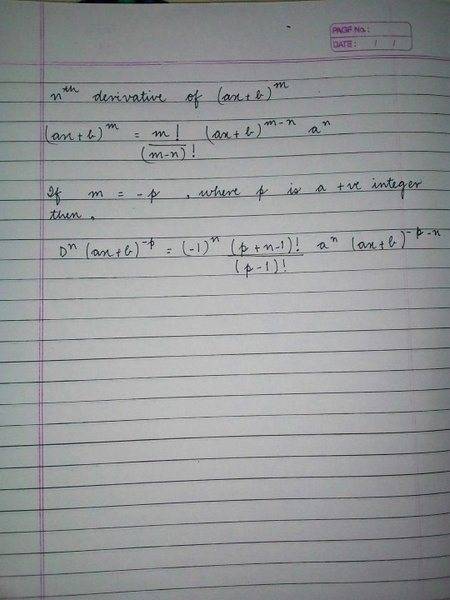 PAGE No.:
DATE: / /
nth derivative of (ax+b)^m
(ax+b)^m = m!/(m-n)! (ax+b)^m-n a^n
If m = -p , where p is a +ve integer
then,
D^n (ax+b)^-p = (-1)^n (p+n-1)!/(p-1)! a^n (ax+b)^-p-n